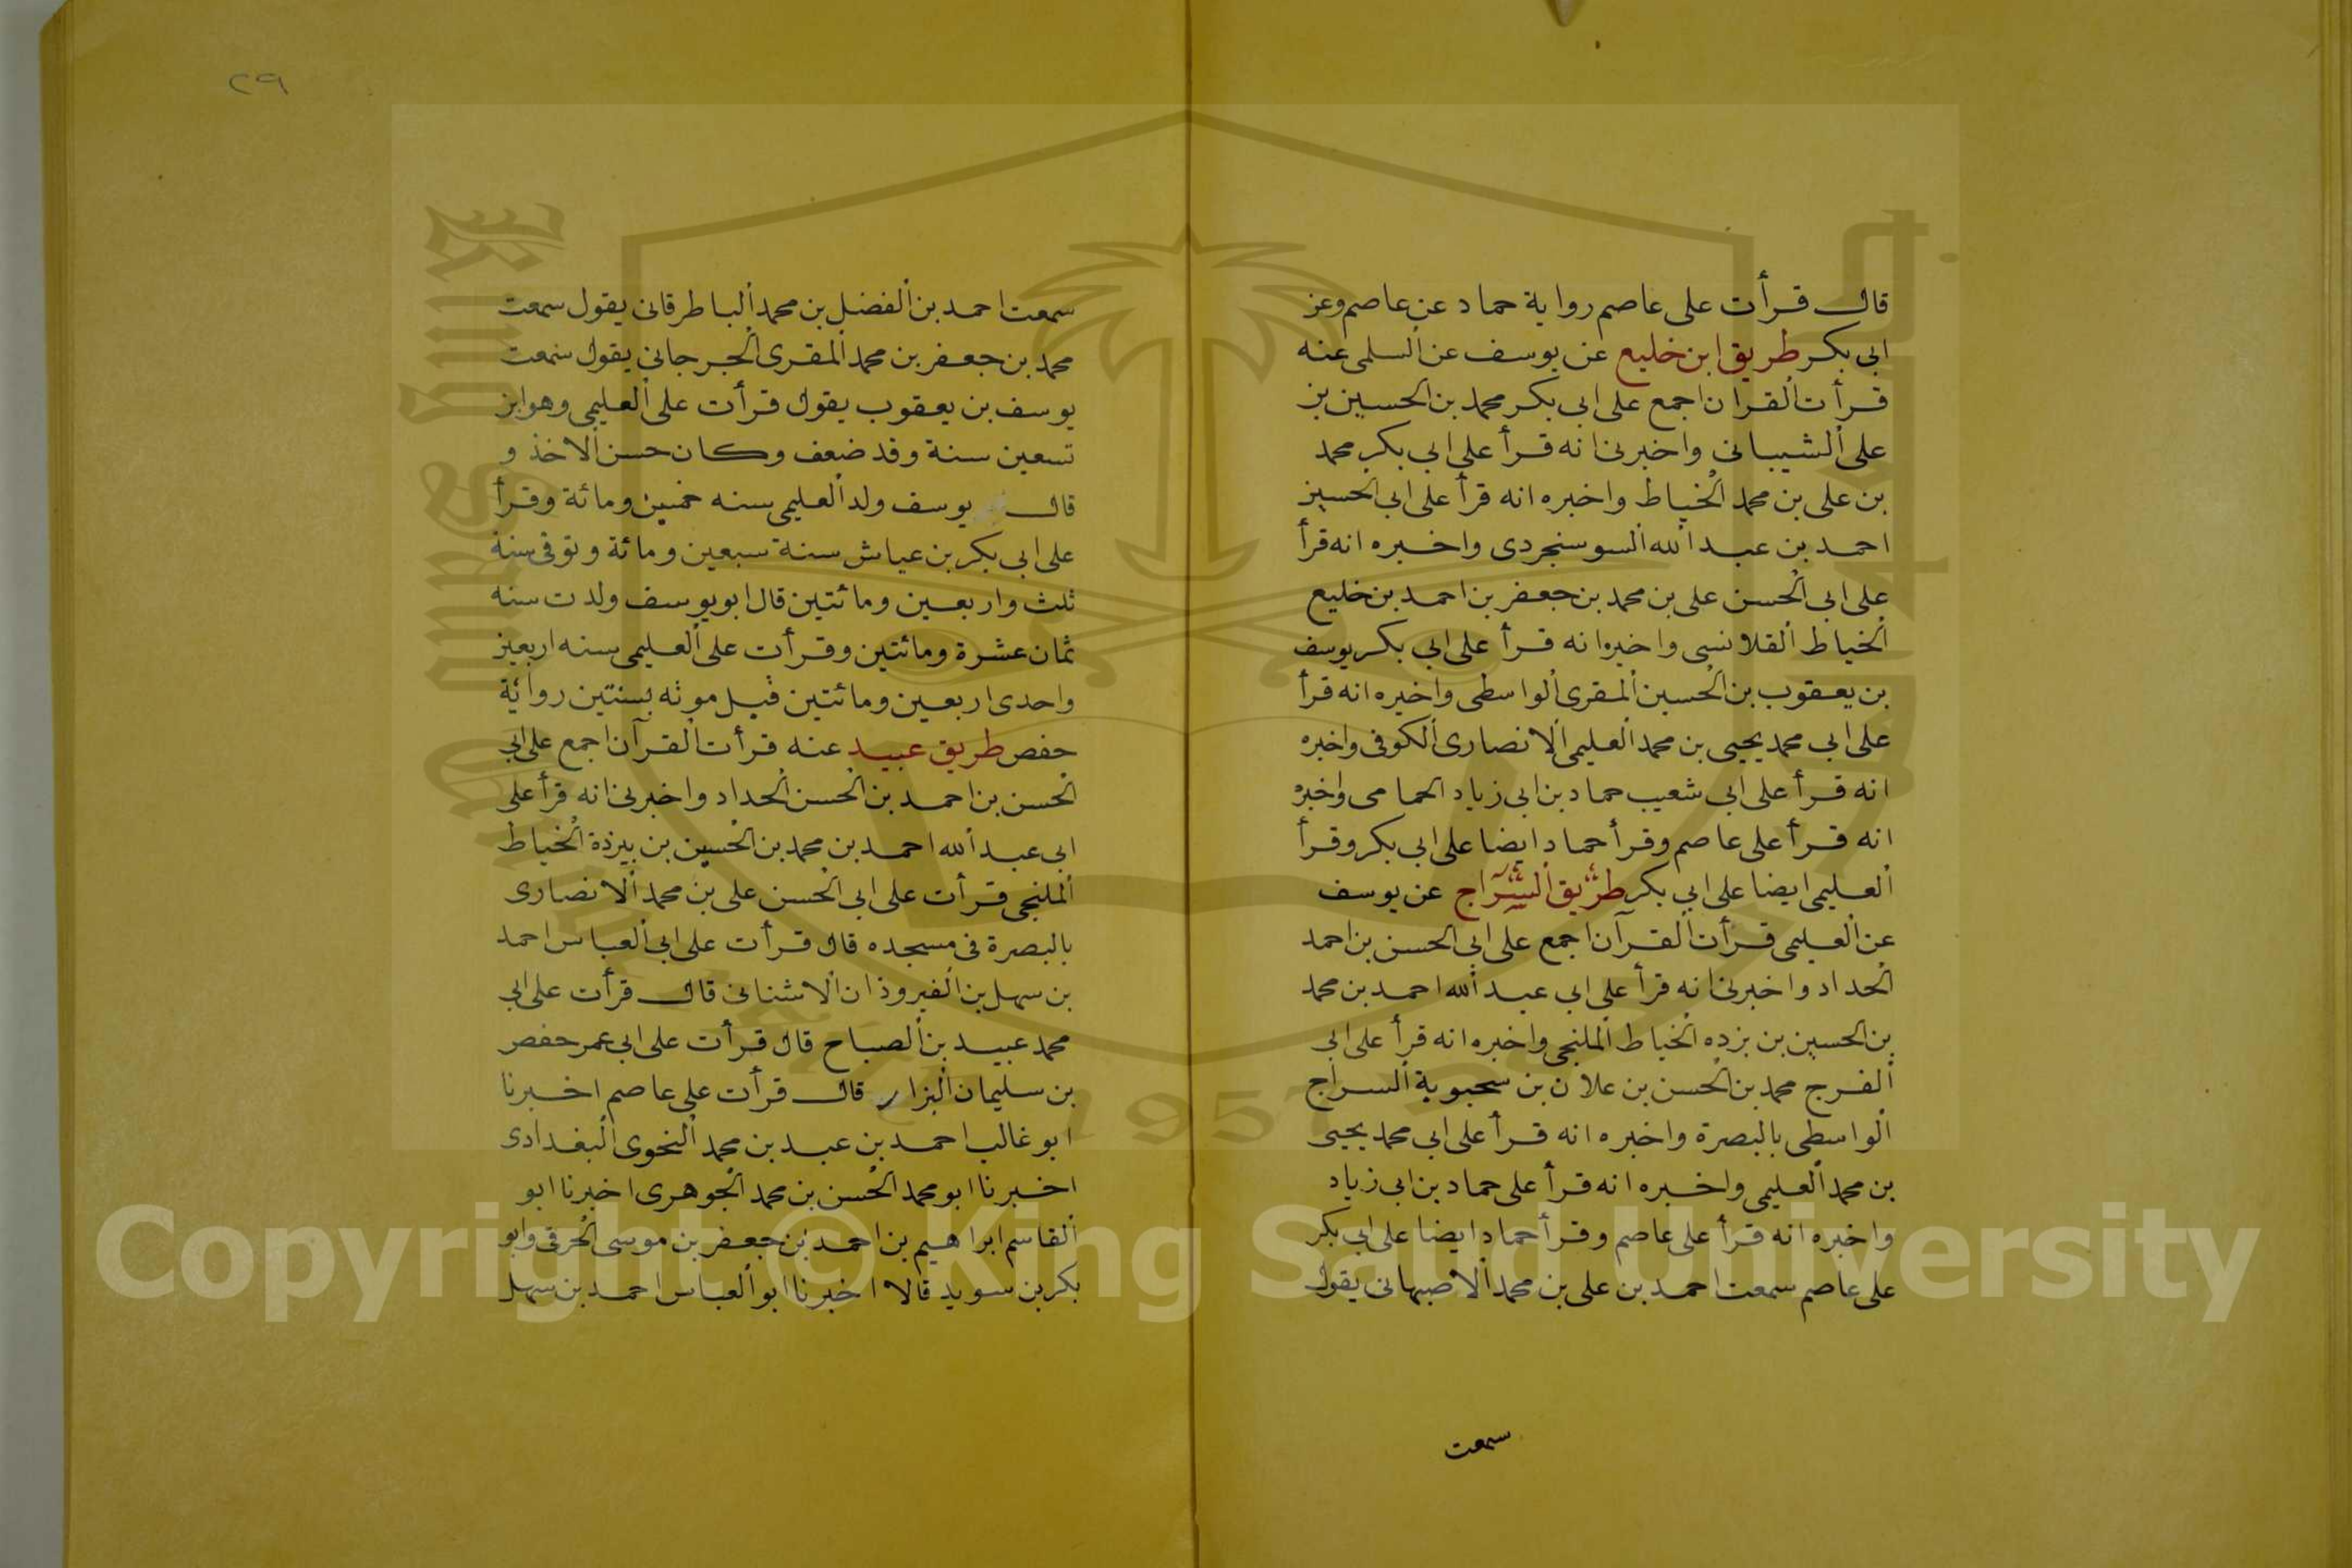 قال قرأت على عاصم رواية حماد عن عاصم وعن
ابى بكر طريق ابن خليع عن يوسف عن السلمى عنه
قرأت القران اجمع على ابى بكر محمد بن الحسين بن
على الشيبانى واخبرنى انه قرأ على ابى بكر محمد
بن على بن محمد الخياط واخبره انه قرأ على ابى الحسين
احمد بن عبد الله السوسنجردى واخبره انه قرأ
على ابى الحسن على بن محمد بن جعفر بن احمد بن خليع
الخياط القلانسى واخبره انه قرأ على ابى بكر يوسف
بن يعقوب بن الحسين المقرى الواسطى واخبره انه قرأ
على ابى محمد يحيى بن محمد العليمى الانصارى الكوفى واخبره
انه قرأ على ابى شعيب حماد بن ابى زياد الحمامى واخبره
انه قرأ على عاصم وقرأ حماد ايضا على ابى بكر وقرأ
العليمى ايضا على ابى بكر طريق السراج عن يوسف
عن العليمى قرأت القرآن اجمع على ابى الحسن بن احمد
الحداد واخبرنى انه قرأ على ابى عبد الله احمد بن محمد
بن الحسين بن يزده الخياط الملنجى واخبره انه قرأ على ابى
الفرج محمد بن الحسن بن علان بن سحبوية السراج
الواسطى بالبصرة واخبره انه قرأ على ابى محمد يحيى
بن محمد العليمى واخبره انه قرأ على حماد بن ابى زياد
واخبره انه قرأ على عاصم وقرأ حماد ايضا على ابى بكر
على عاصم سمعت احمد بن على بن محمد الاصبهانى يقول
سمعت
٢٩
سمعت احمد بن الفضل بن محمد الباطرقانى يقول سمعت
محمد بن جعفر بن محمد المقرى الجرجانى يقول سمعت
يوسف بن يعقوب يقول قرأت على العليمى وهو ابن
تسعين سنة وقد ضعف وكان حسن الاخذ و
قال يوسف ولد العليمى سنه خمسين ومائة وقرأ
على ابى بكر بن عياش سنة سبعين ومائة وتوفى سنة
ثلث واربعين ومائتين قال ابو يوسف ولدت سنه
ثمان عشرة ومائتين وقرأت على العليمى سنه اربعين
واحدى اربعين ومائتين قبل موته بسنتين رواية
حفص طريق عبيد عنه قرأت القرآن اجمع على ابى
الحسن بن احمد بن الحسن الحداد واخبرنى انه قرأ على
ابى عبد الله احمد بن محمد بن الحسين بن يزدة الخياط
الملنجى قرأت على ابى الحسن على بن محمد الانصارى
بالبصرة فى مسجده قال قرأت على ابى العباس احمد
بن سهل بن الفيروذان الاشنانى قال قرأت على ابى
محمد عبيد بن الصباح قال قرأت على ابى عمر حفص
بن سليمان البزار قال قرأت على عاصم اخبرنا
ابو غالب احمد بن عبيد بن محمد النحوى البغدادى
اخبرنا ابو محمد الحسن بن محمد الجوهرى اخبرنا ابو
القاسم ابراهيم بن احمد بن جعفر بن موسى الخرقى وابو
بكر بن سويد قالا اخبرنا ابو العباس احمد بن سهل
Copyright © King Saud University
1957